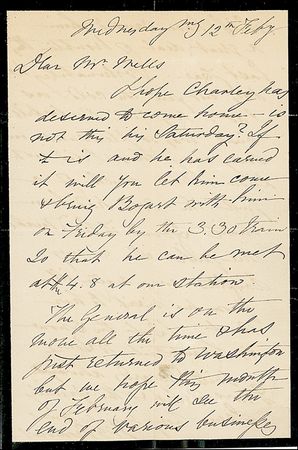 Wednesday mg 12th Feby.
Dear Mr Wells
I hope Charley has
deserved to come home - is
not this his Saturday? If
it is and he has earned
it will you let him come
& bring Bogart with him
on Friday by the 3.30 train
So that he can be met
at the 4.8 at our station
The General is on the
move all the time & has
just returned to Washington
but we hope this month
of February will see the
end of various business